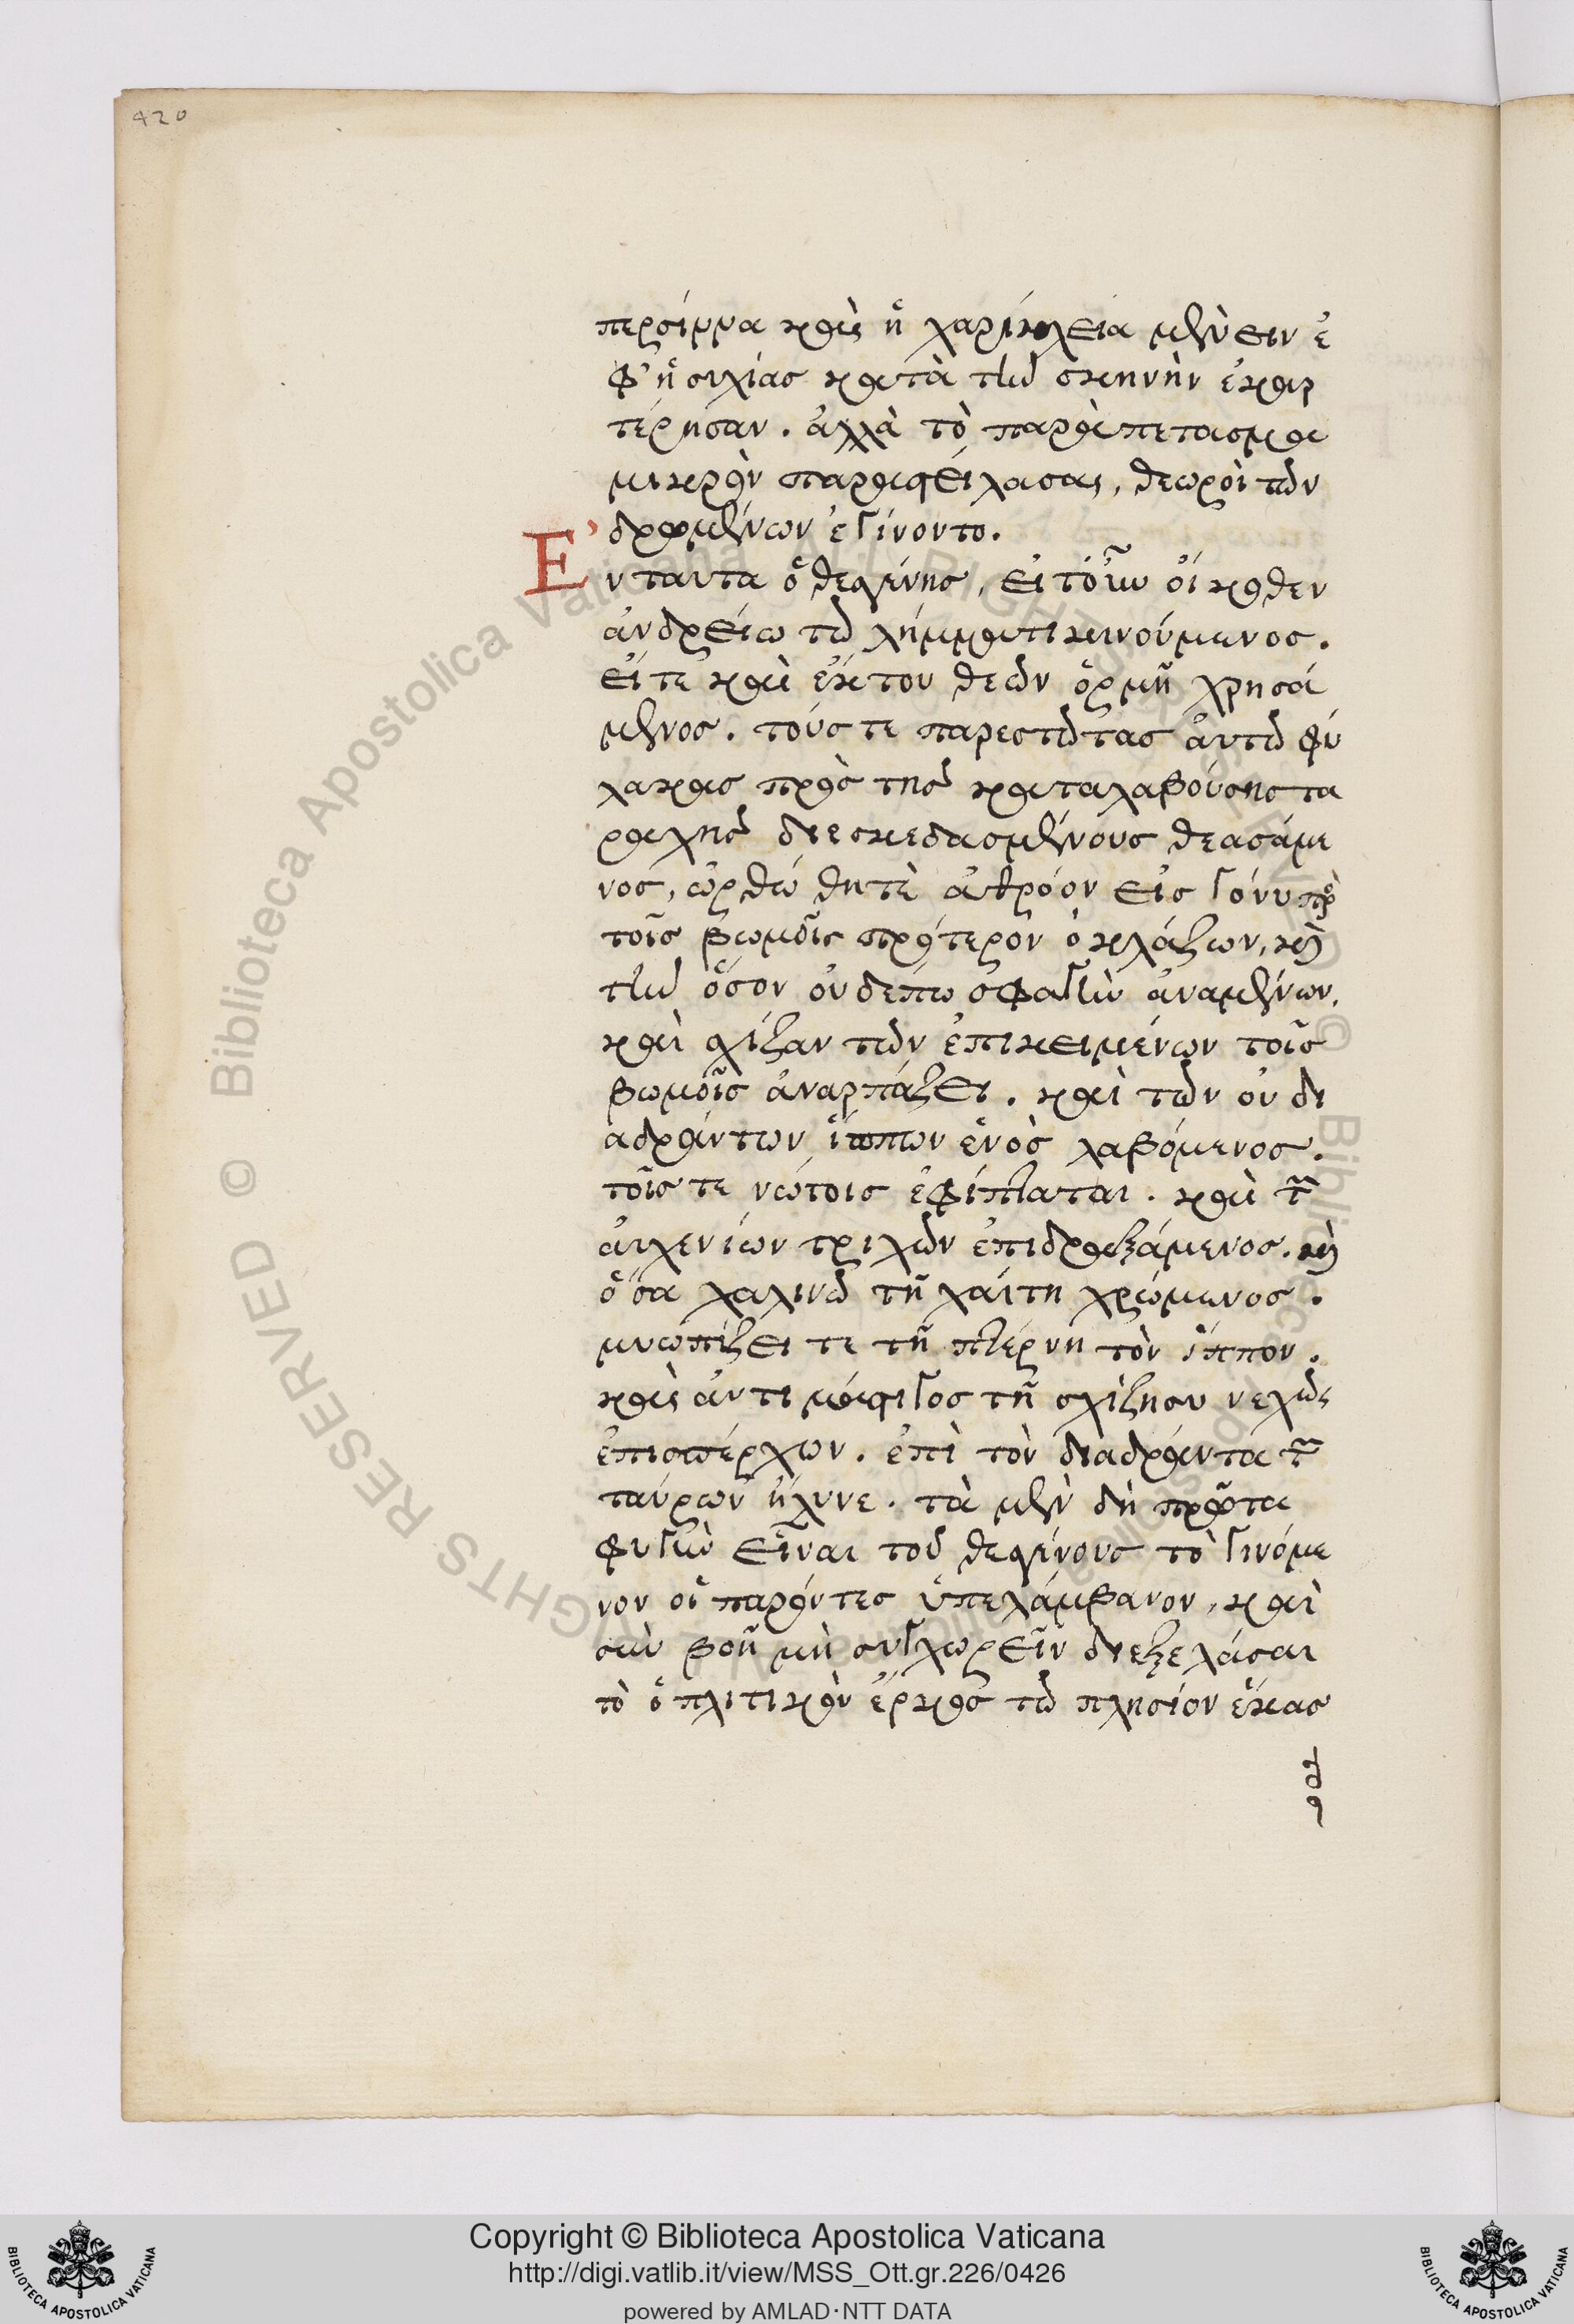 420
περσίννα καὶ ἡ χαρίκλεια μένειν ἐ
φ' ἡσυχίας κατὰ τὴν σκηνὴν ἐκαρ
τέρησαν. ἀλλὰ τὸ παραπετασμα
μικρὸν παραστείλασαι, θεωροὶ τῶν
δρωμένων ἐγίνοντο.
Ἐνταυτα ὁ θεαγένης, εἰ τὸ οὖν οἴκοθεν
ἀνδρείω τῶ λήμματι κινούμενος.
εἴτε καὶ ἔκ του θεῶν ὁρμῆ χρησά
μενος. τούς τε παρεστῶτας ἀυτῶ φύ
λακας πρὸς τῆς καταλαβούσης τα
ραχῆς διεσκεδασμένους θεασάμε
νος, ὠρθώθη τὲ ἀθρόον εἰς γόνυ πρὸ
τοῖς βωμοῖς πρότερον ὀκλάζων, καὶ
τὴν ὅσον οὐδέπω σφαγὴν ἀναμένων.
καὶ σχίζαν τῶν ἐπικειμένων τοῖς
βωμοῖς ἀναρπάζει. καὶ τῶν οὐ δι
αδράντων ἵππων ἑνὸς λαβόμενος.
τοῖς τε νώτοις ἐφίπταται. καὶ τῶν
ἀυχενίων τριχῶν ἐπιδραξάμενος. καὶ
ὅσα χαλινῶ τῆ χαίτη χρώμενος.
μυωπίζει τε τῆ πτέρνη τὸν ἵππον.
καὶ ἀντι μάστιγος τῆ σχίζη συνεχῶς
ἐπισπέρχων. ἐπὶ τὸν διαδράντα τῶν
ταύρων ἤλυνε. τὰ μὲν δὴ πρῶτα
φυγὴν εἶναι τοῦ θεαγένους τὸ γινόμε
νον οἱ παρόντες ὑπελάμβανον, καὶ
σὺν βοῆ μὴ συγχωρεῖν διεξελάσαι
τὸ ὁπλιτικὸν ἕρκος τῶ πλησίον ἕκασ
Copyright © Biblioteca Apostolica Vaticana
http://digi.vatlib.it/view/MSS_Ott.gr.226/0426
powered by AMLAD·NTT DATA